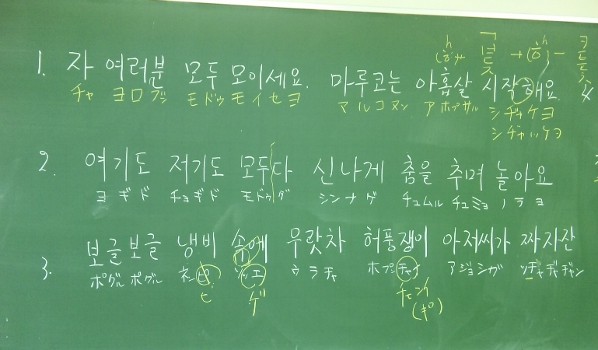 1. 자 여러분 모두 모이세요. 마루코는 아홉살 시작해요.
チャ ヨロブン モドゥ モイセヨ マルコヌン アホプサル シヂャケヨ
シヂャッケヨ
2. 여기도 저기도 모두다 신나게 춤을 추며 놀아요
ヨギド チョギド モドゥダ シンナゲ チュムル チュミョ ノラヨ
3. 보글보글 냄비 속에 우랏차 허풍쟁이 아저씨가 짜지잔
ポグルポグル ウラチャ アジョシガ
ビ ゲ チェンイ
(ギ)